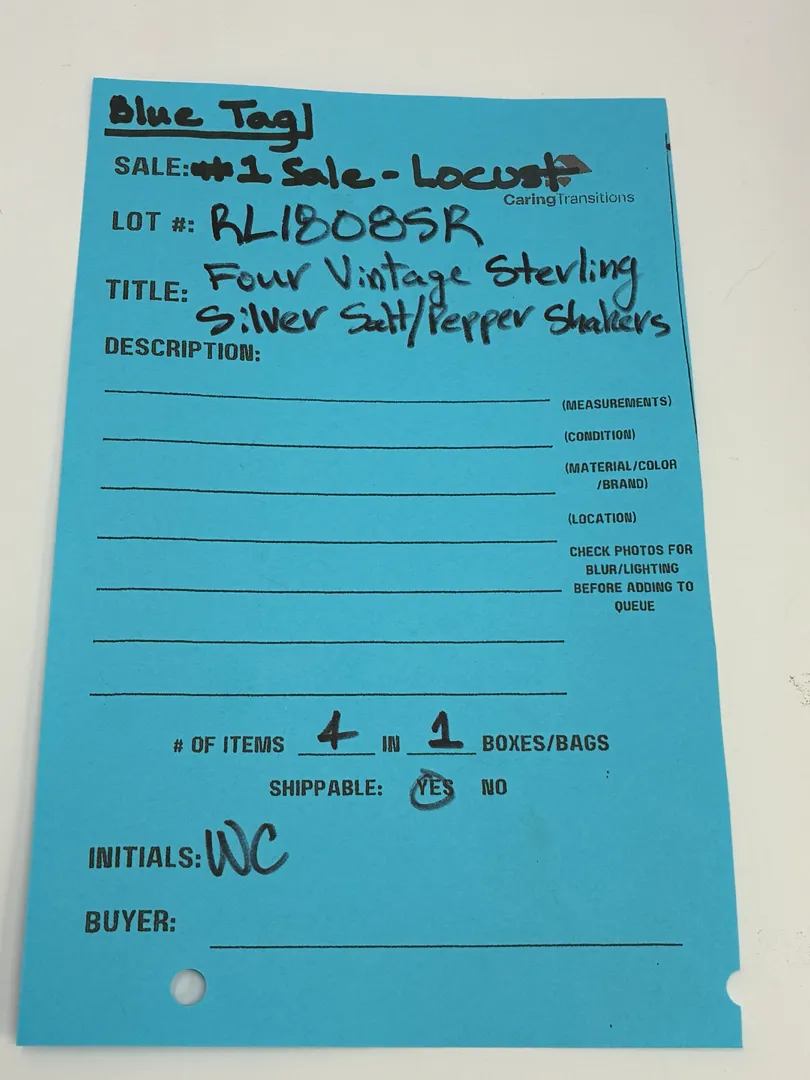 Blue Tag
SALE: #1 Sale - Locust
CaringTransitions
LOT #: RL18085R
TITLE: Four Vintage Sterling
Silver Salt/Pepper Shakers
DESCRIPTION:
(MEASUREMENTS)
(CONDITION)
(MATERIAL/COLOR
/BRAND)
(LOCATION)
CHECK PHOTOS FOR
BLUR/LIGHTING
BEFORE ADDING TO
QUEUE
# OF ITEMS 4 IN 1 BOXES/BAGS
SHIPPABLE: YES NO
INITIALS: WC
BUYER: